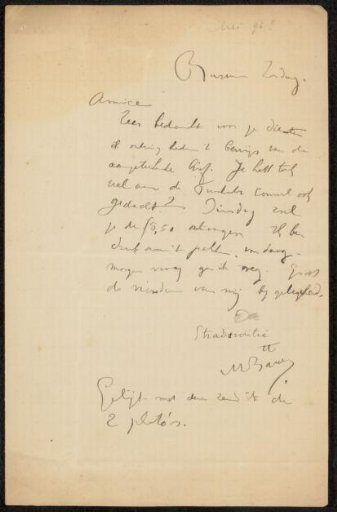 Mei 96?
Bussum Zondag.
Amice
Zeer bedankt voor je diensten
ik ontving heden 't bewijs van de
aangeteekende brief. Je hebt toch
wel aan de ook
gedacht? Dinsdag zul
je de f 8,50 ontvangen. Ik ben
druk aan 't pakken, van daag
morgen vroeg ga ik weg. Groet
de vrienden van mij bij gelegenheid.
tt
MBauer
Gelijk met deze zend ik de
2 photo's.